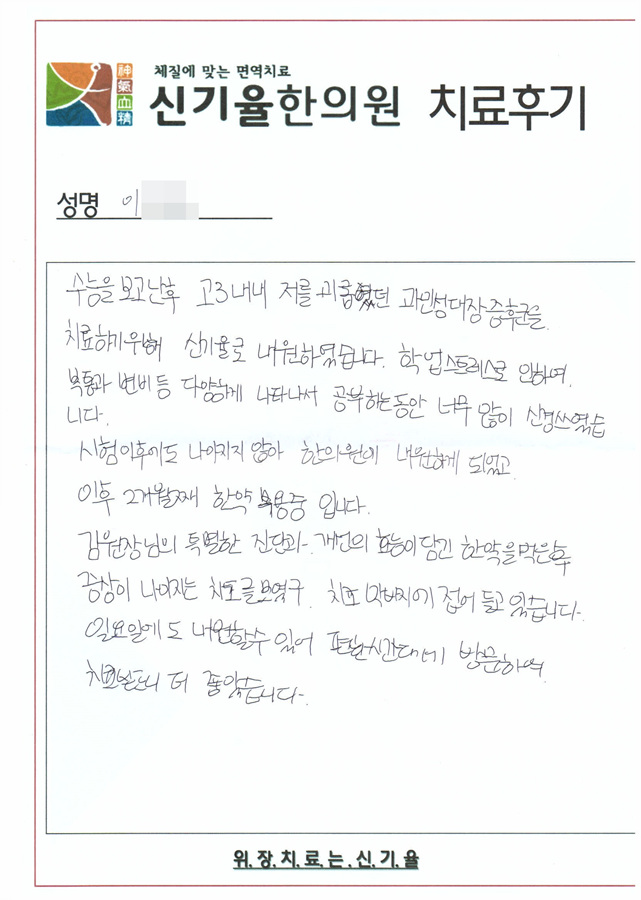 神
氣
血
精
체질에 맞는 면역치료
신기율한의원 치료후기
성명 이
수능을 보고난후 고3내내 저를 괴롭혔던 과민성대장증후군을
치료하기위해 신기율로 내원하였습니다. 학업스트레스로 인하여,
복통과 변비등 다양하게 나타나서 공부하는동안 너무 많이 신경쓰였습
니다.
시험이후에도 나아지지 않아 한의원에 내원하게 되었고
이후 2개월째 한약 복용중 입니다.
김원장님의 특별한 진단과 개인의 효능이 담긴 한약을 먹은후
증상이 나아지는 치료를 보였구. 치료 막바지에 접어 들고 있습니다.
일요일에도 내원할수 있어 편한시간대에 방문하여
치료받으니 더 좋았습니다.
위.장.치.료.는.신.기.율